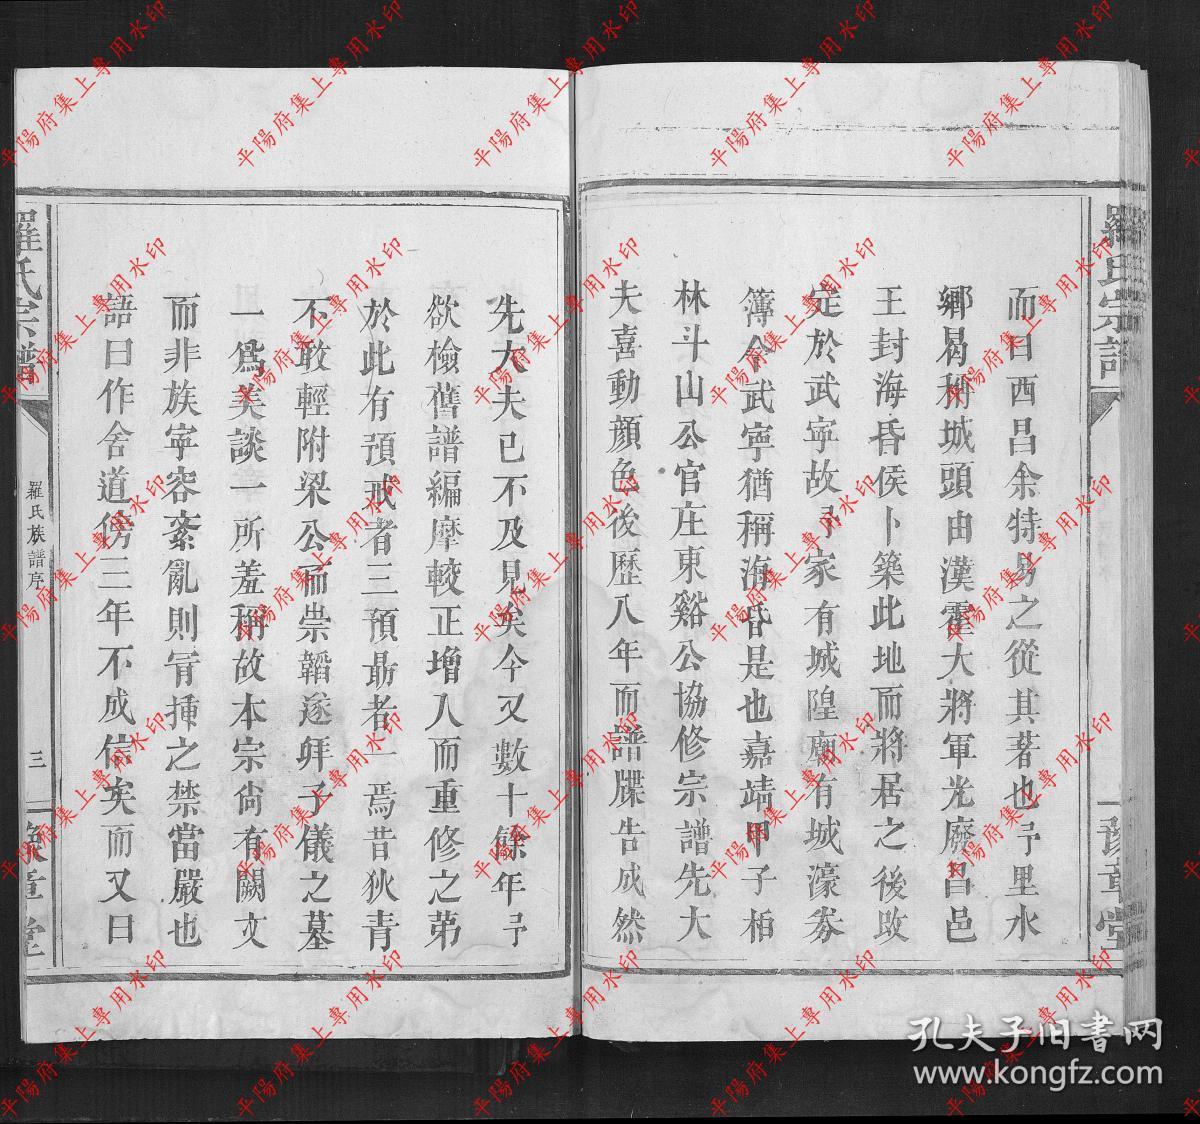 羅氏宗譜
豫章堂
而曰西昌余特易之從其著也予里水
鄉曷稱城頭由漢霍大將軍光廢昌邑
王封海昏侯卜築此地而將居之後改
定於武寧故予家有城隍廟有城濠劵
簿令武寧猶稱海昏是也嘉靖甲子栢
林斗山公官庄東谿公協修宗譜先大
夫喜動顔色後歷八年而譜牒告成然
先大夫已不及見矣今又數十餘年予
欲檢舊譜編摩較正增入而重修之苐
於此有預戒者三預朂者一焉昔狄青
不敢輕附梁公而崇韜遂拜子儀之墓
一爲美談一所羞稱故本宗尙有闕文
而非族寧容紊亂則冐揷之禁當嚴也
語曰作舍道傍三年不成信矣而又曰
羅氏宗譜
羅氏族譜序
三
豫章堂
平陽府集上專用水印
孔夫子旧書网
www.kongfz.com